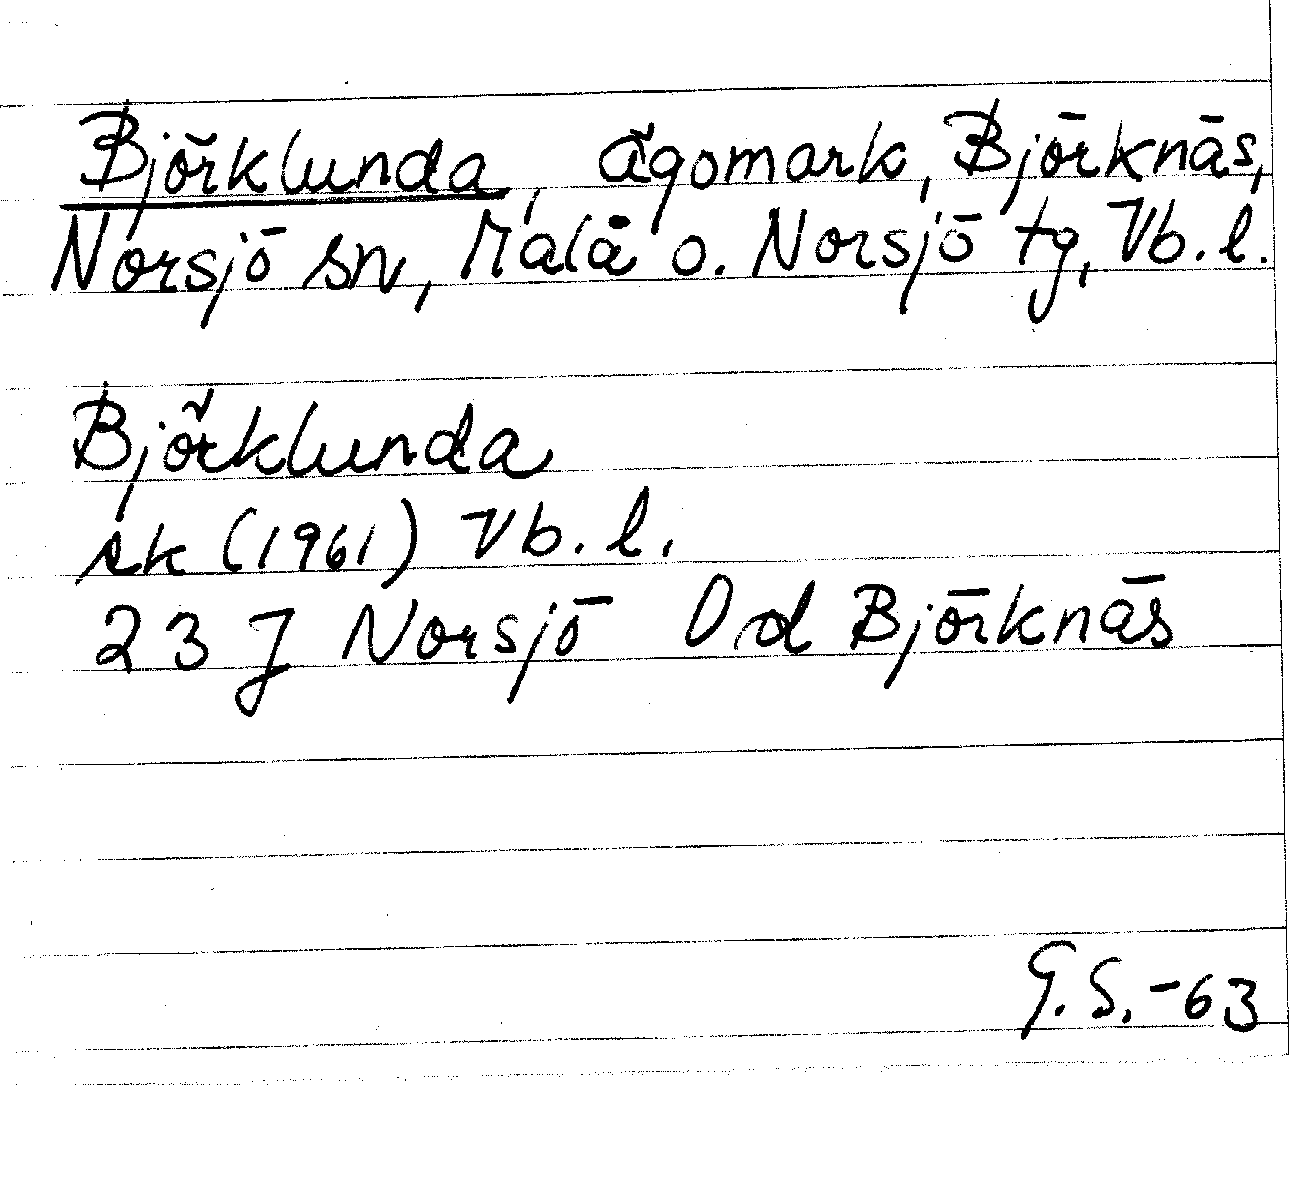 Björklunda, ägomark, Björknäs,
Norsjö sn, Malå o. Norsjö tg, Vb. l.
Björklunda
ek (1961) Vb. l.
23 J Norsjö 0 d Björknäs
G.S.-63